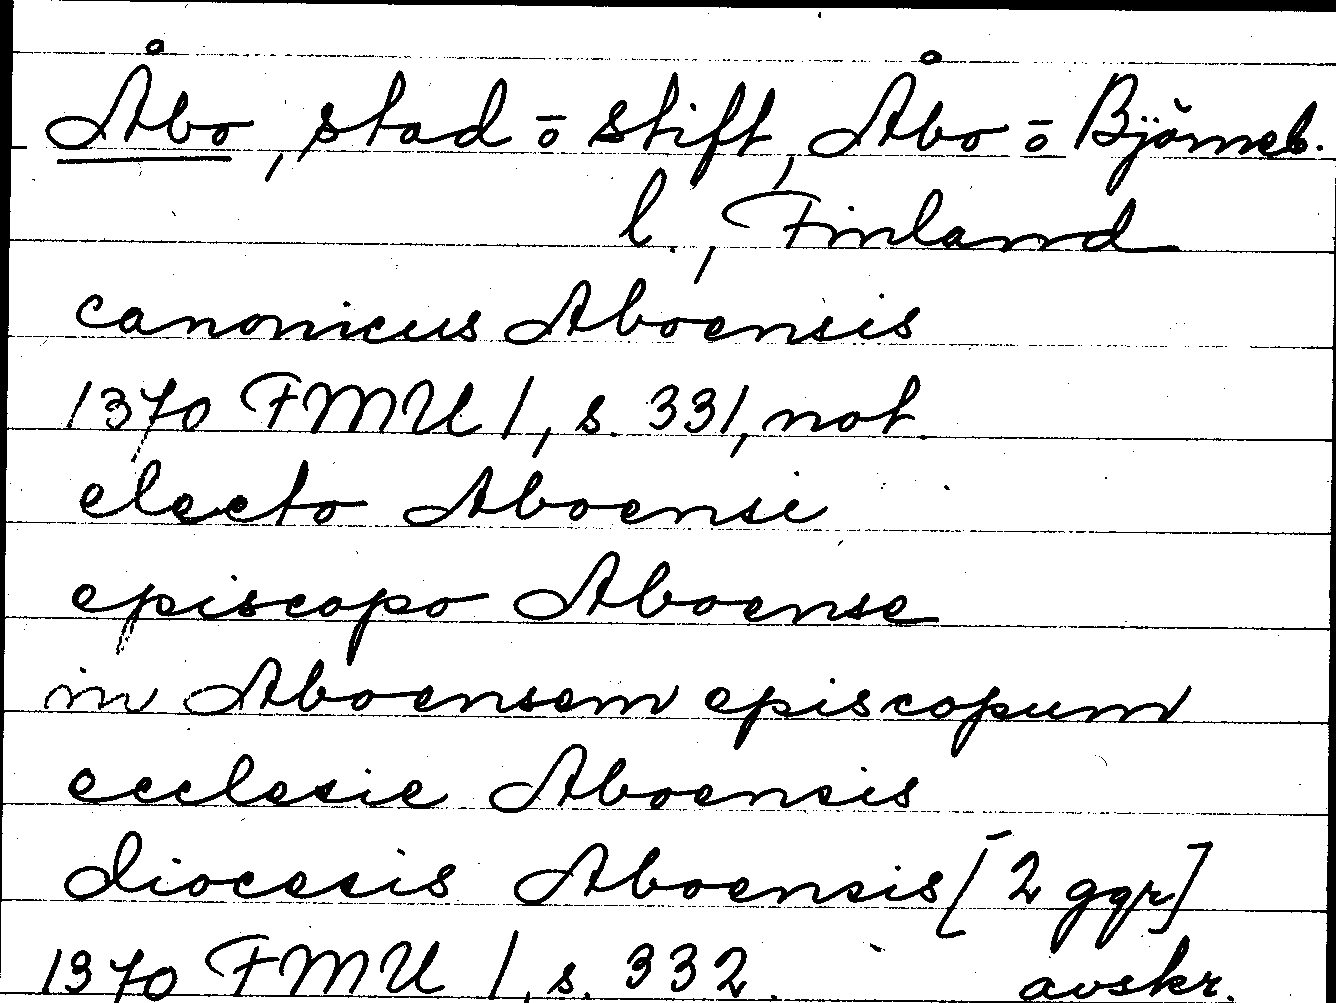 Åbo, stad ō stift, Åbo ō Björneb.
l., Finland
canonicus Aboensis
1370 FMU 1, s. 331, not.
electo Aboensi
episcopo Aboense
in Aboensem episcopum
ecclesie Aboensis
diocesis Aboensis [2 ggr]
1370 FMU 1, s. 332. avskr.